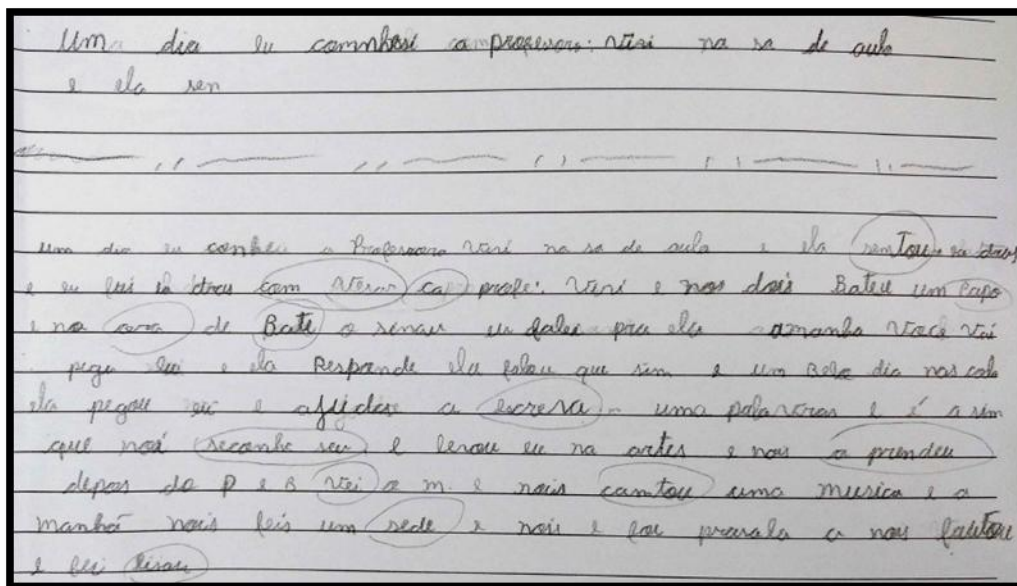 Uma dia eu comnhesi a profesora: Vivi na sa de aula
e ela sen
um dia eu conheci a Professora Vivi na sa de aula e ela senTou la atras
e eu fui la atras com versar ca profe: Vivi e nos dois Bateu um Papo
e na ora de Bate o sinau eu falei pra ela amanha Você vai
pega eu e ela Responde ela falou que sim e um Bela dia
ela pegou eu e a escreva uma palavras e é a sim
que noi seconhe seu e levou eu na artes e nois a prendeu
depois do P e B Vei o m. e nois camtou uma musica e a
manhã nois feis um sede e nois e foi
e fui